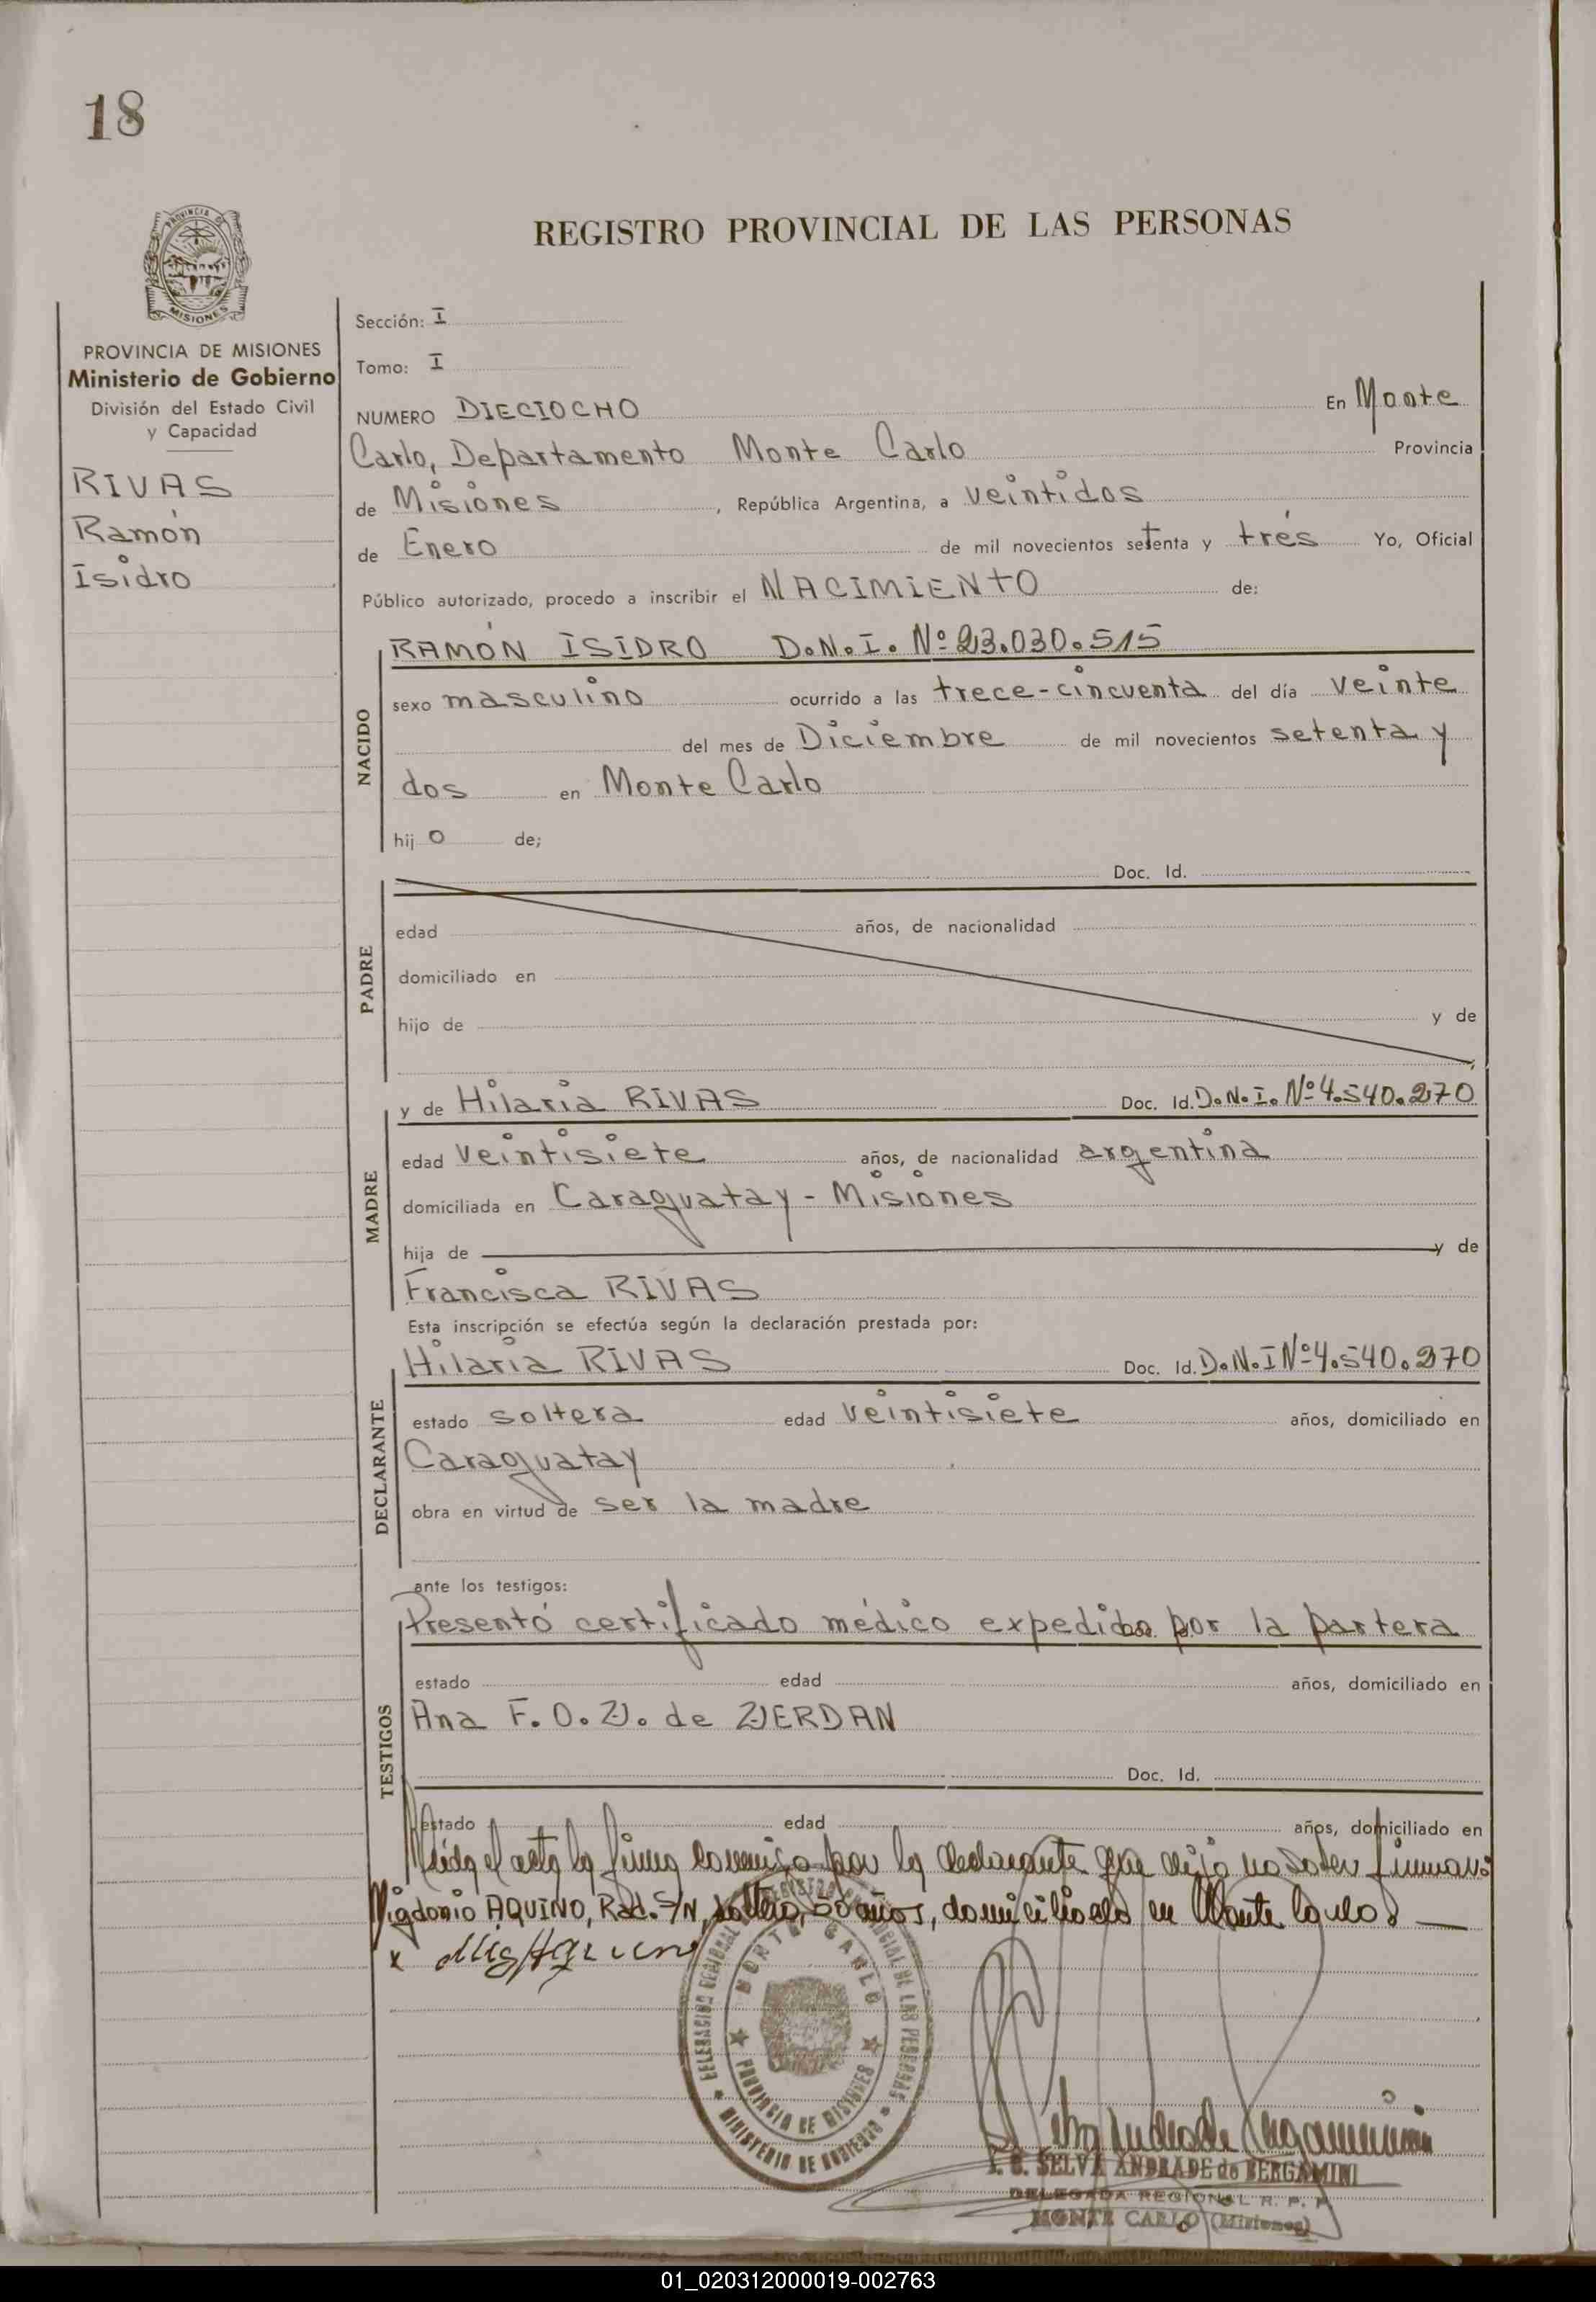 18
REGISTRO PROVINCIAL DE LAS PERSONAS
MISIONES
PROVINCIA DE MISIONES
Ministerio de Gobierno
División del Estado Civil
y Capacidad
RIVAS
Ramón
Isidro
Sección: I
Tomo: I
NUMERO DIECIOCHO En Monte
Carlo, Departamento Monte Carlo Provincia
de Misiones, República Argentina, a veintidos
de Enero de mil novecientos setenta y trés Yo, Oficial
Público autorizado, procedo a inscribir el NACIMIENTO de:
NACIDO
RAMÓN ISIDRO D.N.I. Nº 23.030.515
sexo masculino ocurrido a las trece-cincuenta del día veinte
del mes de Diciembre de mil novecientos setenta y
dos en Monte Carlo
hijo de;
PADRE
Doc. Id.
edad años, de nacionalidad
domiciliado en
hijo de y de
MADRE
y de Hilaria RIVAS Doc. Id. D.N.I. Nº 4.540.270
edad veintisiete años, de nacionalidad argentina
domiciliada en Caraguatay - Misiones
hija de y de
Francisca RIVAS
Esta inscripción se efectúa según la declaración prestada por:
DECLARANTE
Hilaria RIVAS Doc. Id. D.N.I Nº 4.540.270
estado soltera edad veintisiete años, domiciliado en
Caraguatay
obra en virtud de ser la madre
ante los testigos:
TESTIGOS
Presentó certificado médico expedido por la partera
estado edad años, domiciliado en
Ana F. O. Z. de ZERDAN
Doc. Id.
estado edad años, domiciliado en
Leída el acta la firma conmigo por la declarante que dijo no saber firmar:
Migdonio AQUINO, Rad. S/N, soltero, 50 años, domiciliado en Monte Carlo
x Mig Aquino
DELEGACION REGIONAL REGISTRO PROVINCIAL DE LAS PERSONAS
MONTE CARLO
PROVINCIA DE MISIONES
MINISTERIO DE GOBIERNO
SELVA ANDRADE de BERGAMINI
DELEGADA REGIONAL R. P. P.
MONTE CARLO (Misiones)
01_020312000019-002763